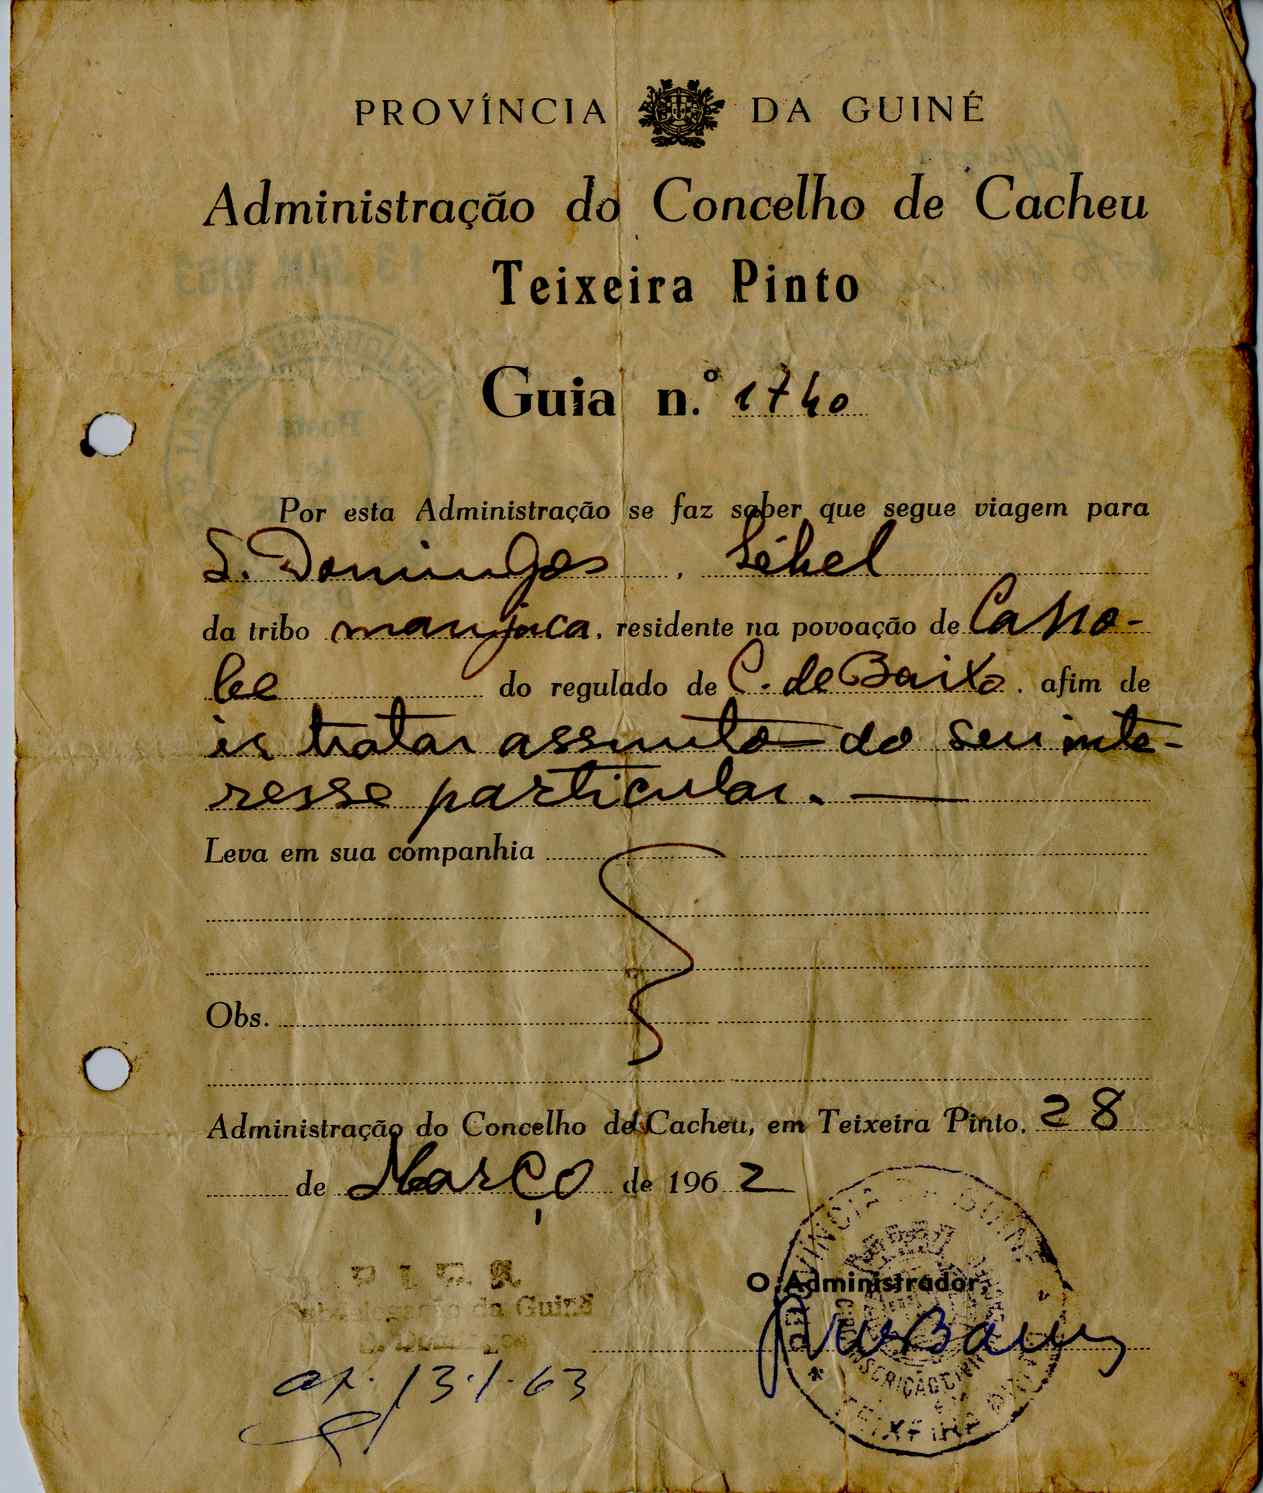 PROVÍNCIA DA GUINÉ
Administração do Concelho de Cacheu
Teixeira Pinto
Guia n.º 1740
Por esta Administração se faz saber que segue viagem para
S. Domingos, Léhel
da tribo manjaca, residente na povoação de Casso-
be do regulado de C. de Baixo, afim de
ir tratar assunto do seu inte-
resse particular. —
Leva em sua companhia
Obs.
Administração do Concelho de Cacheu, em Teixeira Pinto, 28
de Março de 1962
P. I. D. E.
Subdelegação da Guiné
S. Domingos
O Administrador,
PROVÍNCIA DA GUINÉ
TEIXEIRA PINTO
ap. 13.1.63